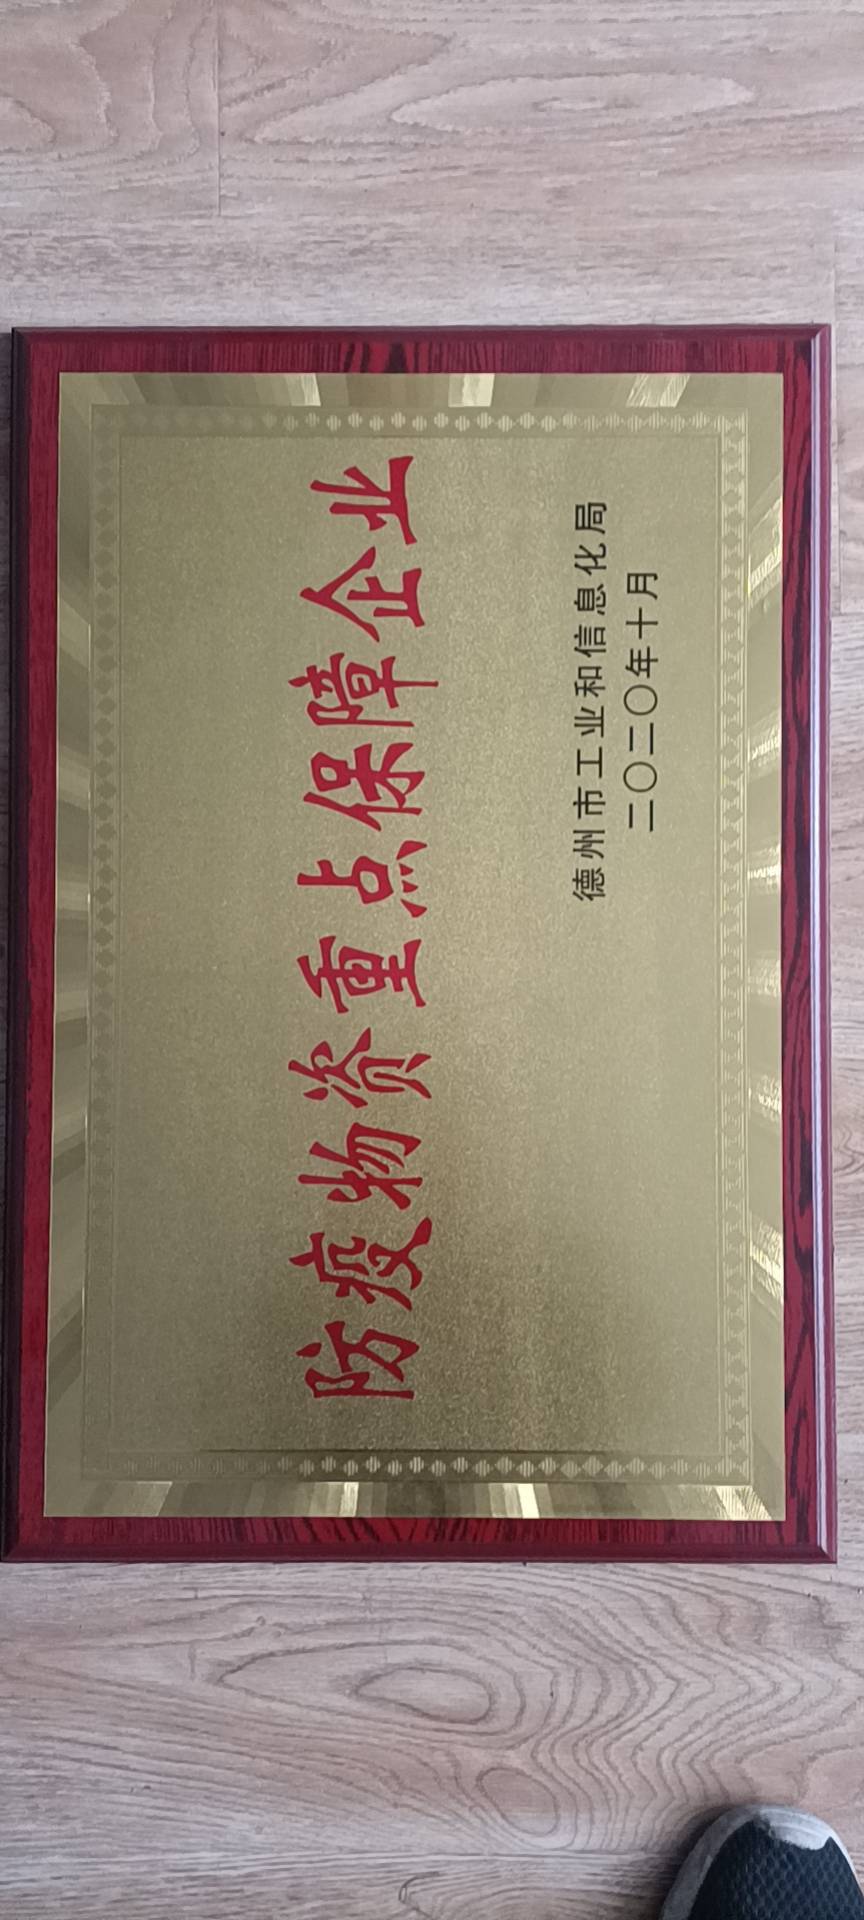 防疫物资重点保障企业
德州市工业和信息化局
二〇二〇年十月